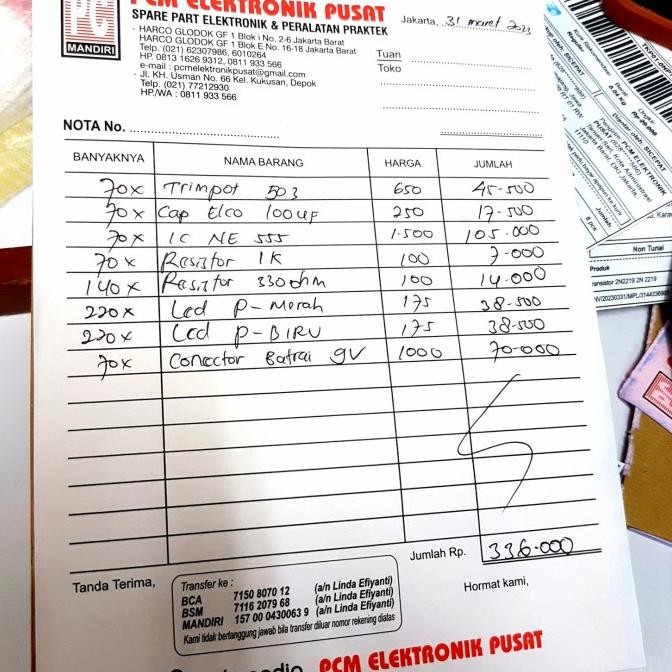 PCM ELEKTRONIK PUSAT
PC
MANDIRI
SPARE PART ELEKTRONIK & PERALATAN PRAKTEK
- HARCO GLODOK GF 1 Blok i No. 2-6 Jakarta Barat
HARCO GLODOK GF 1 Blok E No. 16-18 Jakarta Barat
Telp. (021) 62307986, 6010264
HP. 0813 1626 9312, 0811 933 566
e-mail : pcmelektronikpusat@gmail.com
- Jl. KH. Usman No. 66 Kel. Kukusan, Depok
Telp. (021) 77212930
HP/WA : 0811 933 566
Jakarta, 31 maret 2023
Tuan
Toko
NOTA No.
BANYAKNYA NAMA BARANG HARGA JUMLAH
70x Trimpot 503 650 45-500
70x Cap Elco 100uF 250 17-500
70x IC NE 555 1-500 105.000
70x Resistor 1K 100 7-000
140x Resistor 330 ohm 100 14.000
220x Led P-Merah 175 38-500
220x Led P-BIRU 175 38-500
70x Conector Batrai 9V 1000 70-000
Jumlah Rp. 336-000
Tanda Terima,
Hormat kami,
Transfer ke :
BCA 7150 8070 12 (a/n Linda Efiyanti)
BSM 7116 2079 68 (a/n Linda Efiyanti)
MANDIRI 157 00 0430063 9 (a/n Linda Efiyanti)
Kami tidak bertanggung jawab bila transfer diluar nomor rekening diatas
PCM ELEKTRONIK PUSAT
Non Tunai
Produk
transistor 2N2219 2N 2219